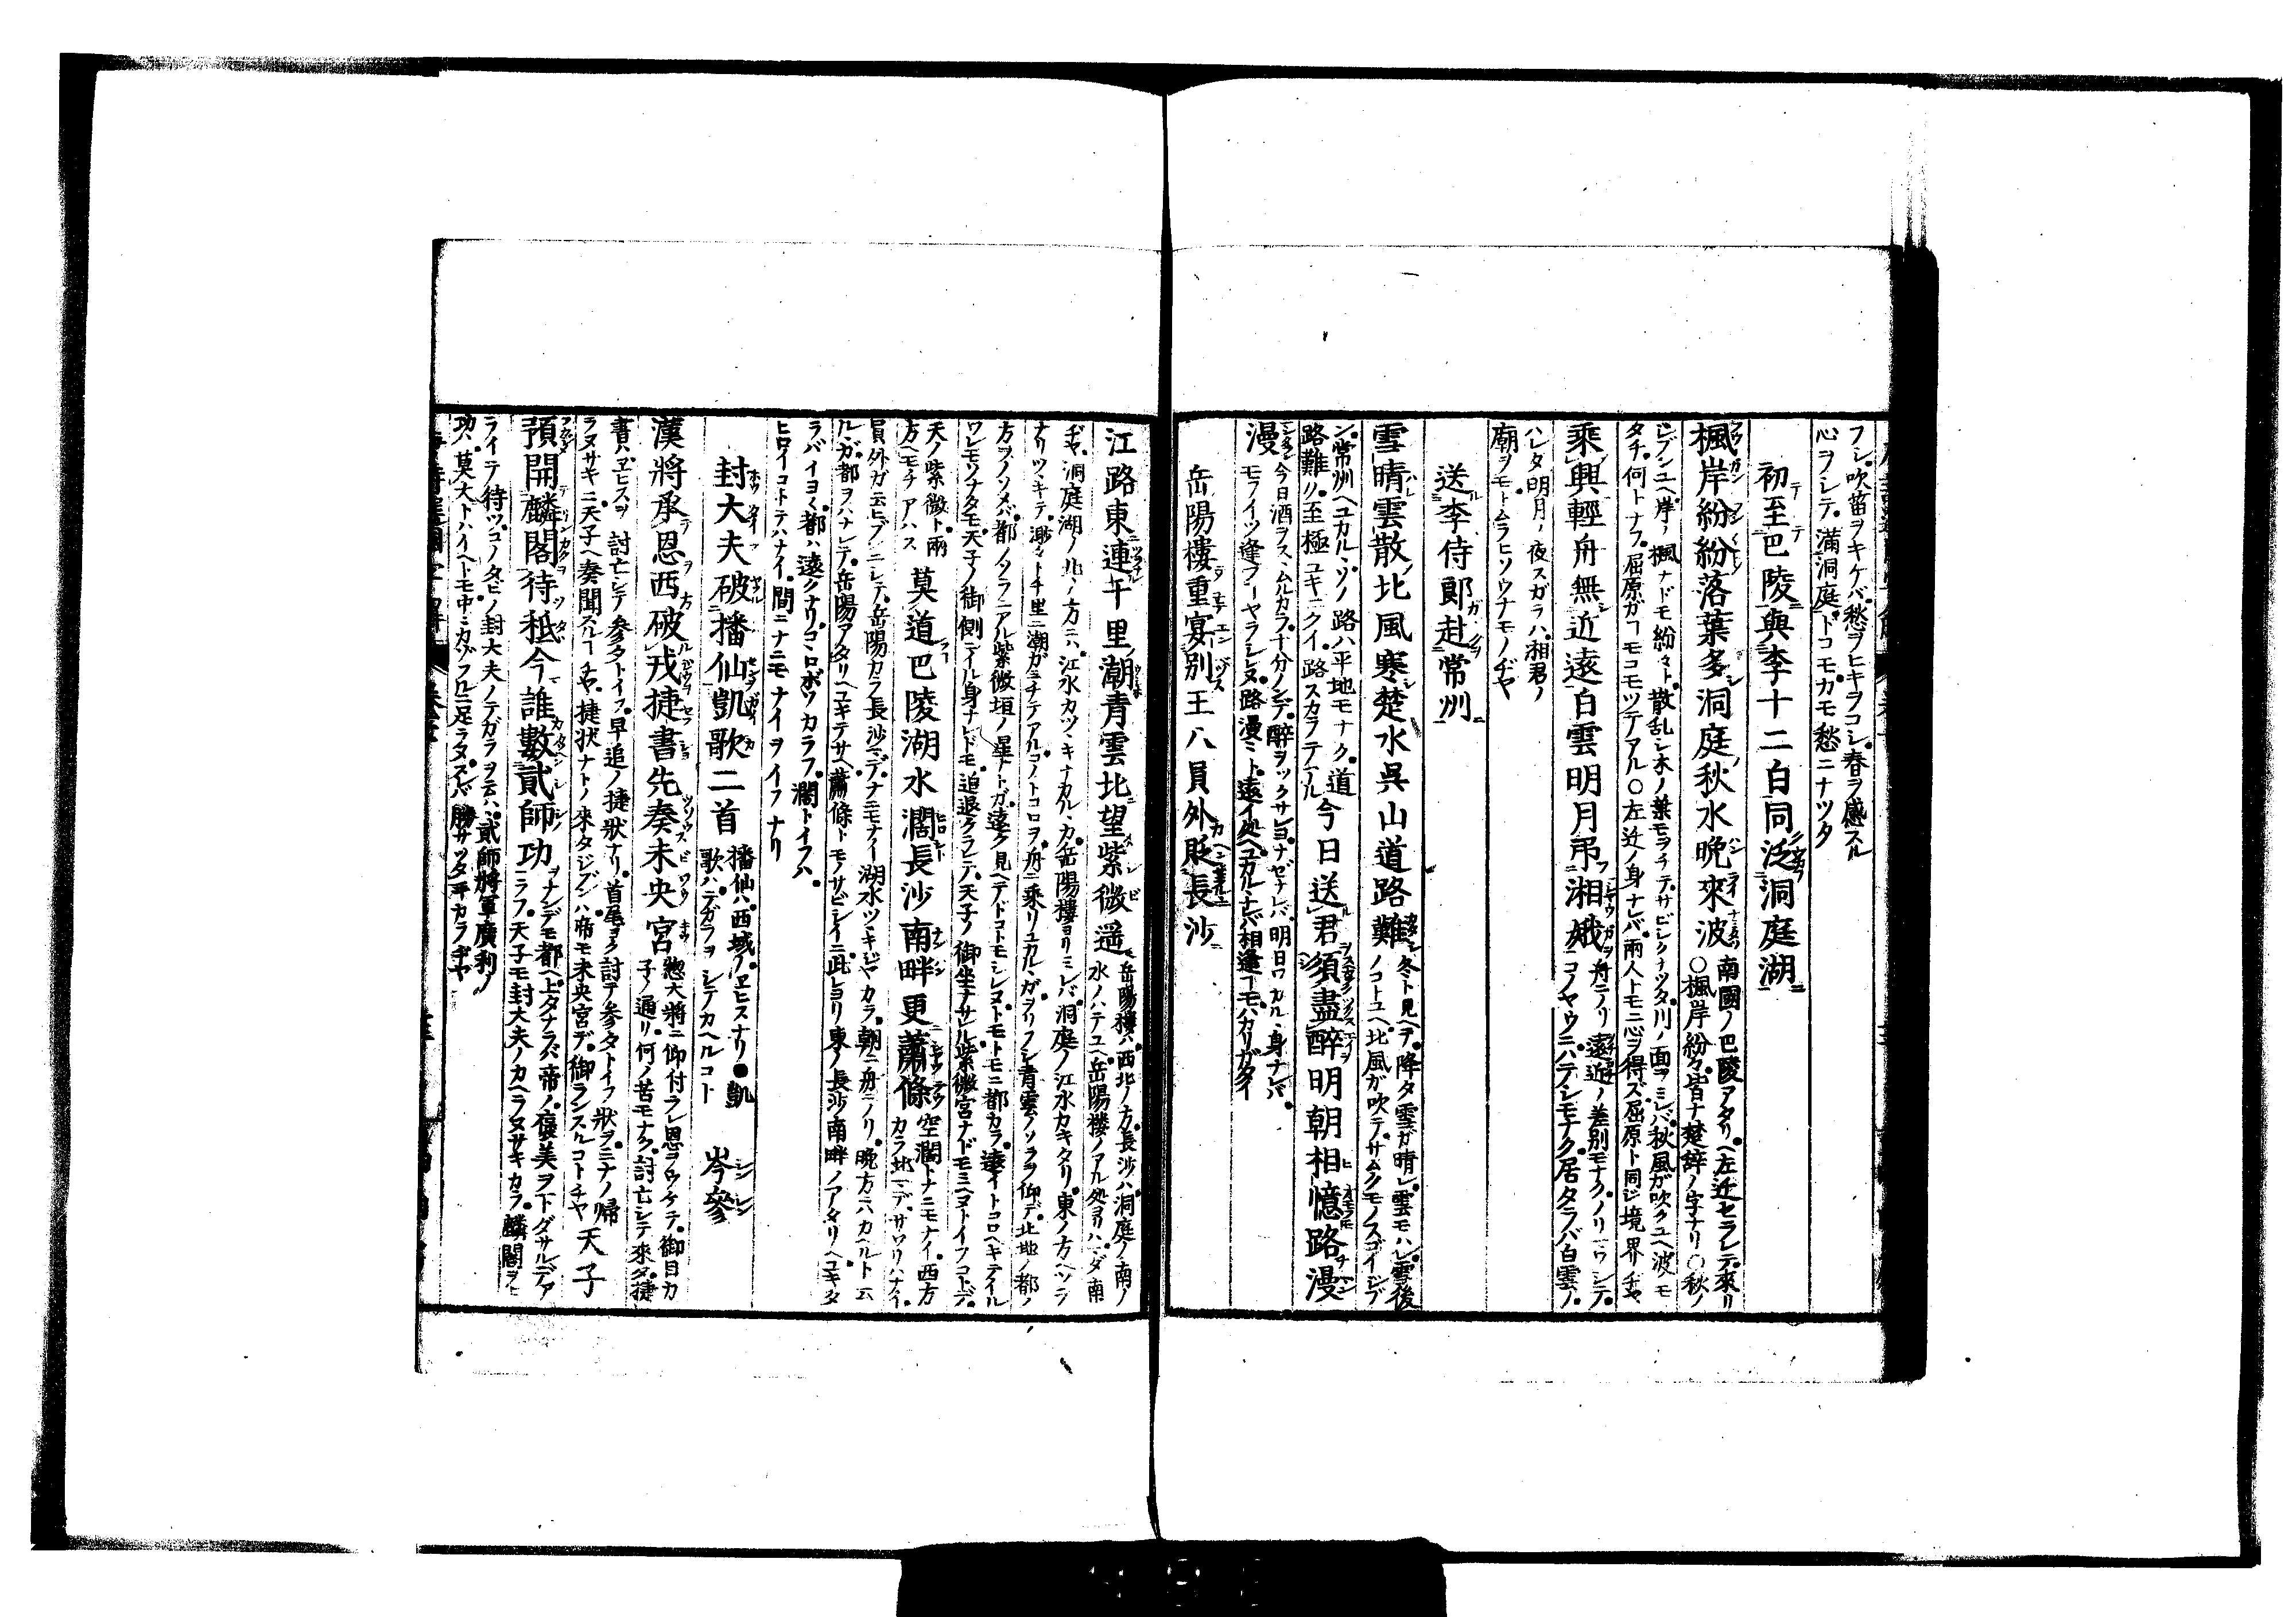 フシ吹笛ヲキケバ愁ヲヒキヲコシ春ヲ感スル
心ヲシテ滿洞庭ドコモカモ愁ニナツタ
初至巴陵與李十二白同泛洞庭湖
楓岸紛紛落葉多洞庭秋水晩來波
南國ノ巴陵アタリヘ左迁セラレテ來リ
○楓岸紛々皆ナ楚辞ノ字ナリ○秋ノ
ジブンユヘ岸ノ楓ナドモ紛々ト散乱シ木ノ葉モヲチテサビシクナツタ川ノ面ヲミレバ秋風ガ吹クユヘ波モ
タチ何トナフ屈原ガヿモコモツテアル○左迁ノ身ナレバ兩人トモニ心ヲ得ズ屈原ト同ジ境界ヂヤ
乘興輕舟無近遠白雲明月吊湘娥
舟ニノリ遠近ノ差別モナクノリマワシテ
コノヤウニハテシモナク居タラバ白雲ノ
ハレタ明月ノ夜スガラハ湘君ノ
廟ヲモトムラヒソウナモノヂヤ
送李侍郎赴常州
雪晴雲散北風寒楚水呉山道路難
冬ト見ヘテ降タ雪ガ晴レ雲モハレ雪後
ノコトユヘ北風ガ吹テサムクモノスゴイジブ
ン常州ヘユカルヽソノ路ハ平地モナク道
路難ク至極ユキニクイ路スカラテアル
今日送君須盡醉明朝相憶路漫
漫
今日酒ヲスヽムルカラ十分ノンデ醉ヲツクサレヨナゼナレバ明日ワカルヽ身ナレバ
モフイツ逢フヿヤラシレヌ路漫々ト遠イ処ヘユカルヽナレバ相逢ヿモハカリガタイ
岳陽樓重宴別王八員外貶長沙
江路東連千里潮青雲北望紫微遥
岳陽樓ハ西北ノ方長沙ハ洞庭ノ南ノ
水ノハテユヘ岳陽楼ノアル処ヨリハマダ南
ヂヤ洞庭湖ノ北ノ方ニハ江水カツヾキナカルヽカ岳陽樓ヨリミレバ洞庭ノ江水カキタリ東ノ方ヘソラ
ナリツヾキテ渺々ト千里ニ潮ガミチテアルコノトコロヲ舟ニ乘リユカルヽガヲリフシ青雲ノソラヲ仰デ北地ノ都ノ
方ヲノソメバ都ノソラニアル紫微垣ノ星ナトガ遠ク見ヘテドコトモシレヌトモトモニ都カラ遠イトコロヘキテイル
ワレモソナタモ天子ノ御側ニイル身ナレドモ追退クラレテ天子ノ御坐ナサルヽ紫微宮ナドモミヘヌトイフコトデ
天ノ紫微ト兩
方ヘモチアハス
莫道巴陵湖水濶長沙南畔更蕭條
空濶トナニモナイ西方
カラ北マデサワリハナイ
員外ガ玉ヒブンニシテ岳陽カラ長沙マデナニモナイ湖水ツヾキジヤカラ朝ニ舟ニノリ晩方ニハカヘルト云
ルヽガ都ヲハナレテ岳陽アタリヘユキテサヘ蕭條トモノサビシイニ此レヨリ東ノ長沙ノ南畔ノアタリヘユキタ
ラバイヨイヨ都ハ遠クナリコヽロボソカラフ濶トイフハ
ヒロイコトテハナイ間ニナニモナイヲイフナリ
封大夫破播仙凱歌二首
播仙ハ西域ノヱヒスナリ●凱
歌ハテガラヲシテカヘルコト
岑參
漢將承恩西破戎捷書先奏未央宮
惣大將ニ仰付ラレ恩ヲウケテ御目カ
子ノ通リ何ノ苦モナク討亡シテ來タ捷
書ハヱビスヲ討亡シテ参タトイフ早追ノ捷狀ナリ首尾ヨク討テ参タトイフ狀ヲミナノ歸
ラヌサキニ天子ヘ奏聞スルヿヂヤ捷状ナトノ來タジブンハ帝モ未央宮デ御ランスルコトヂヤ
天子
預開麟閣待秪今誰數貳師功
ヲナンデモ都ヘ上タナラバ帝ノ褒美ヲ下ダサルデア
ラフ天子モ封大夫ノカヘラヌサキカラ麟閣ヲヒ
ライテ待ツコノタビノ封大夫ノテガラヲ云ハヾ貳師將軍廣利ノ
功ハ莫大トハイヘトモ中々カゾフルニ足ラヌスレバ勝サツタ手カラヂヤ